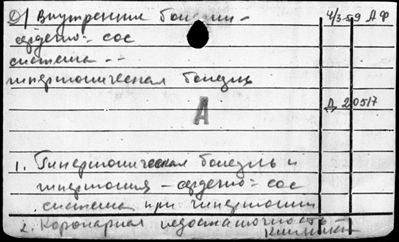 D) Внутренние болезни -
4/3-59 АФ
сердечно-сос
система - -
гипертоническая болезнь
Д 20517
А
1. Гипертоническая болезнь и
гипертония - сердечно-сос
система при гипертонии
2. Коронарная недостаточность